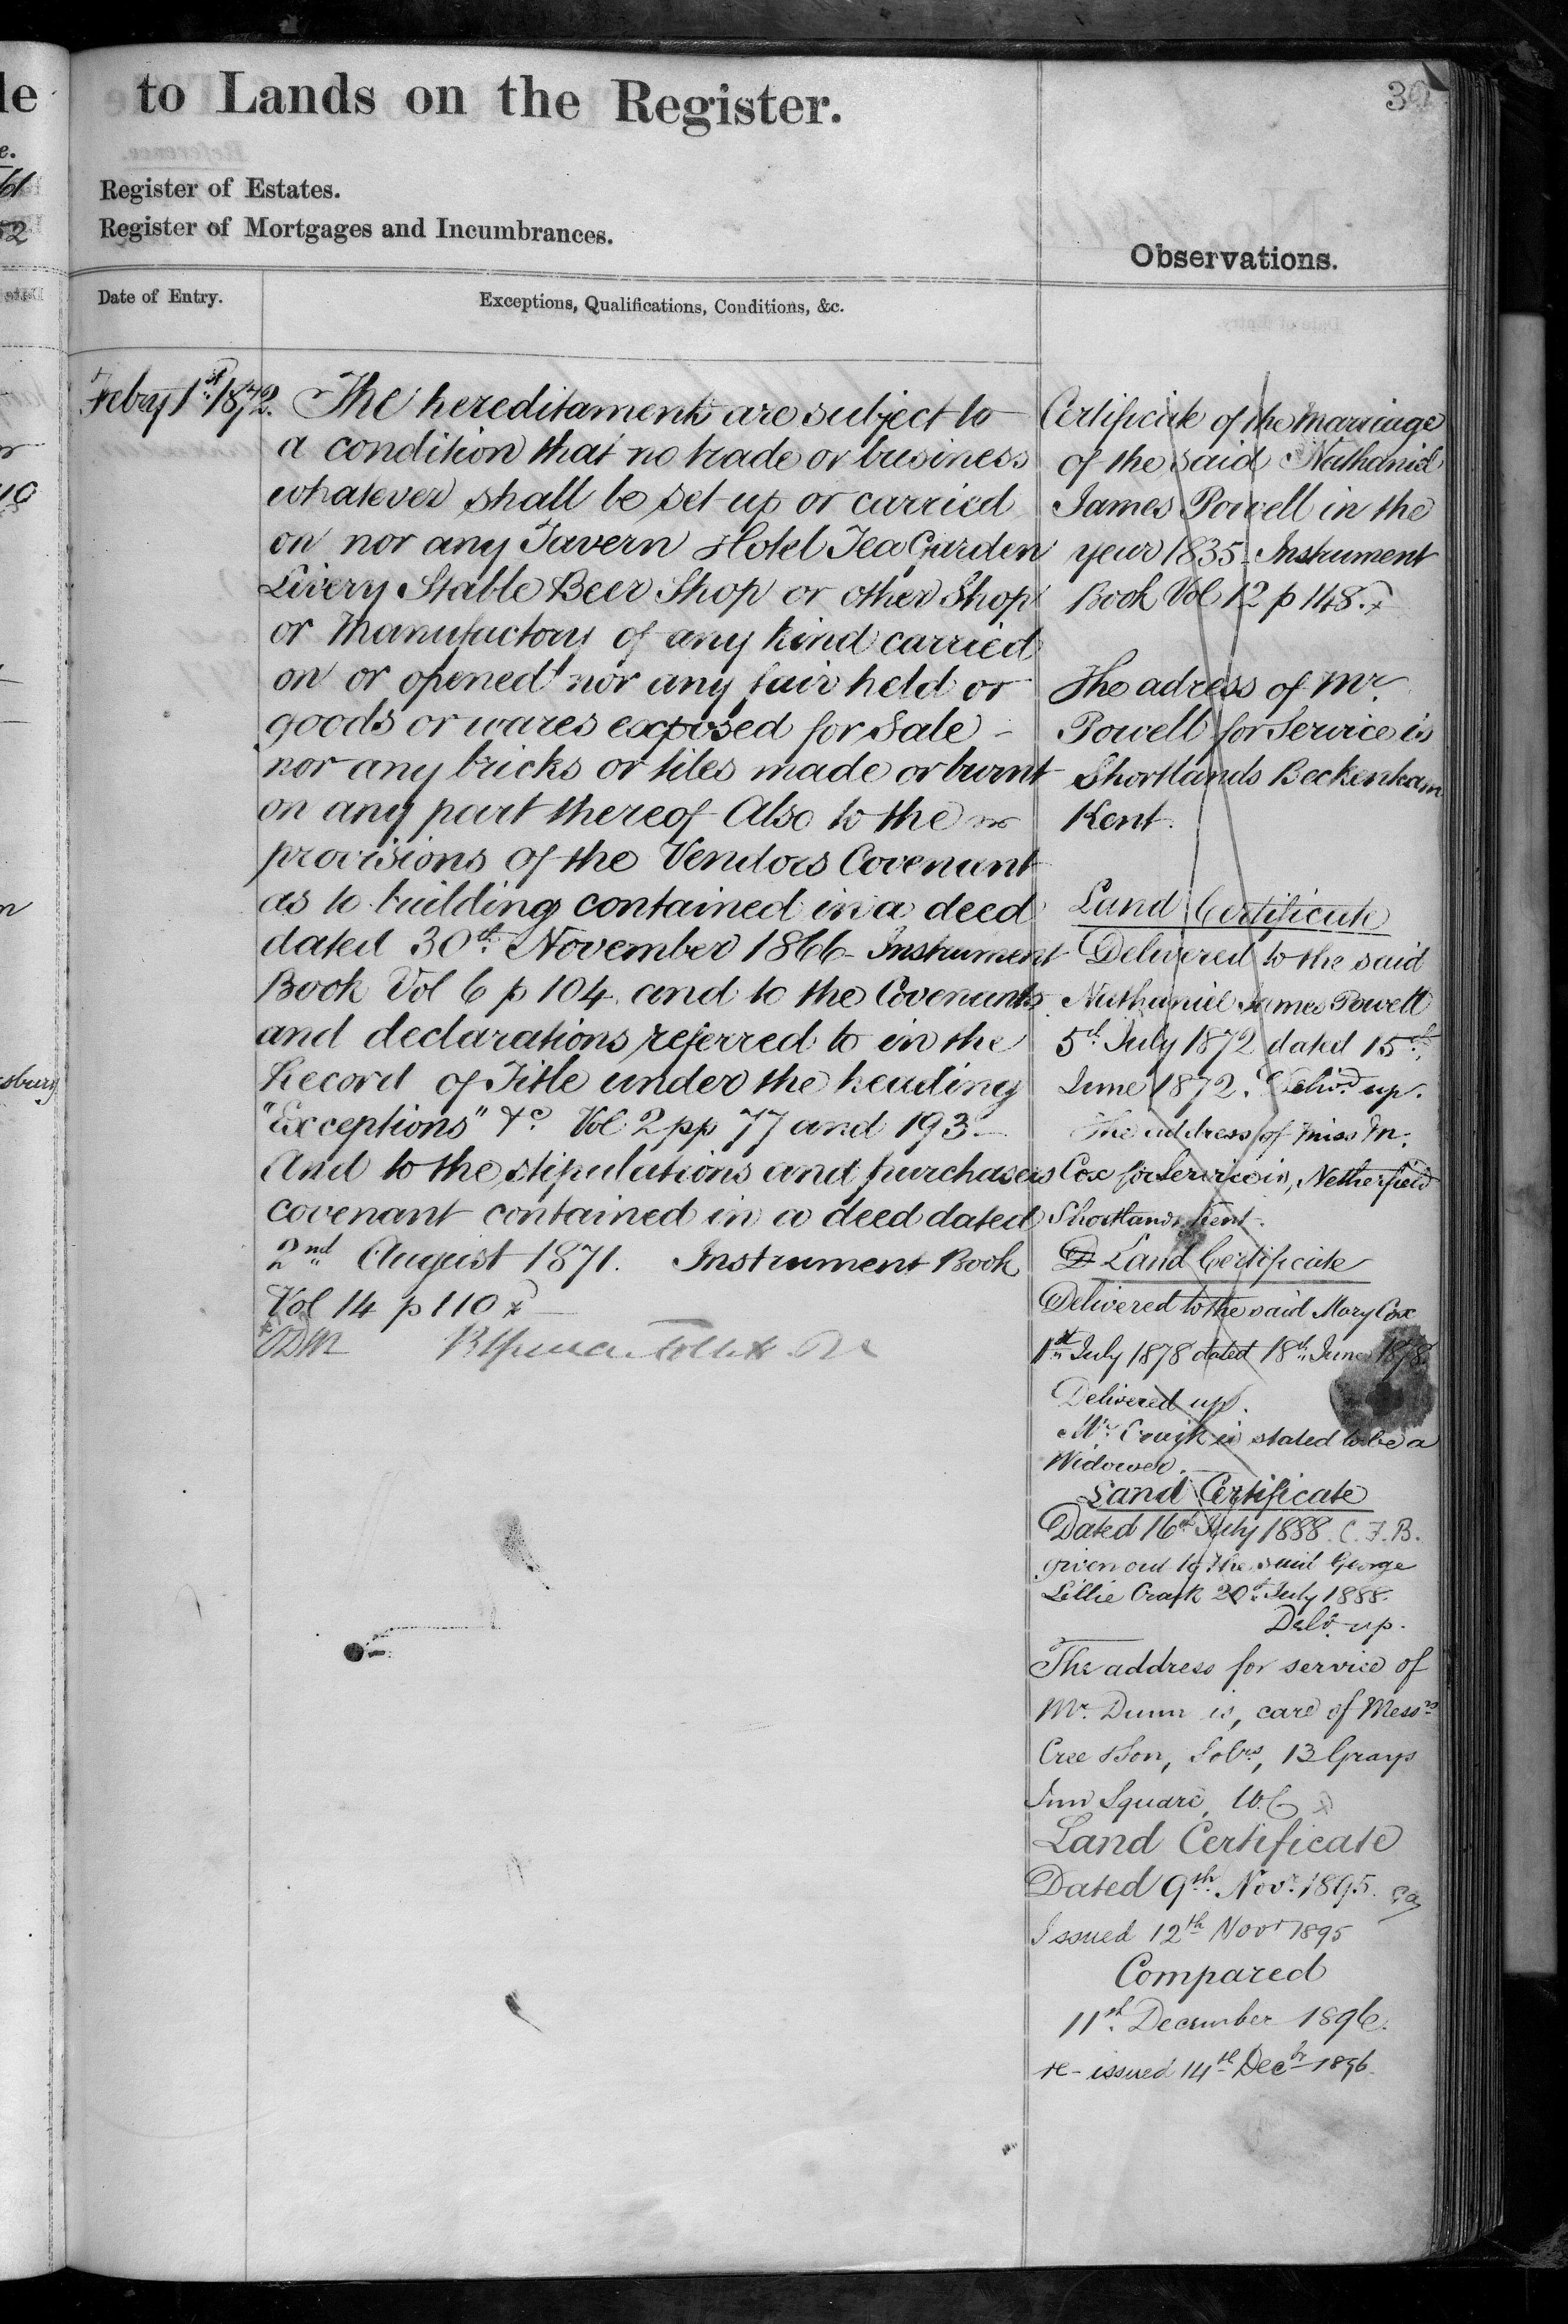 to Lands on the Register.
39
Register of Estates.
Register of Mortgages and Incumbrances.
Observations.
Date of Entry.
Exceptions, Qualifications, Conditions, &c.
Febry 1st 1872.
The hereditaments are subject to
a condition that no trade or business
whatever shall be set up or carried
on nor any Tavern Hotel Tea Garden
Livery Stable Beer Shop or other Shop
or Manufactory of any kind carried
on or opened nor any fair held or
goods or wares exposed for Sale -
nor any bricks or tiles made or burnt
on any part thereof Also to the
provisions of the Vendors Covenant
as to building contained in a deed
dated 30th November 1866 - Instrument
Book Vol 6 p 104 and to the Covenants
and declarations referred to in the
Record of Title under the heading
"Exceptions" &c Vol 2 pp 77 and 193 -
And to the stipulations and purchasers
covenant contained in a deed dated
2nd August 1871. Instrument Book
Vol 14 p 110
Certificate of the Marriage
of the said Nathaniel
James Powell in the
year 1835 - Instrument
Book Vol 12 p 148.
The adress of Mr.
Powell for Service is
Shortlands Beckenham
Kent.
Land Certificate
Delivered to the said
Nathaniel James Powell
5th July 1872 dated 15th
June 1872. Delivd. up.
The address of Miss M.
Cox for Service is, Netherfield
Shortlands Kent.
Land Certificate
Delivered to the said Mary Cox
1st July 1878 dated 18th June 1878.
Delivered up.
Mr. Craik is stated to be a
Widower.
Land Certificate
Dated 16th July 1888 C.F.B.
given out to the said George
Lillie Craik 20th July 1888.
Delv. up.
The address for service of
Mr. Dunn is, care of Messrs
Cree & Son, Solrs, 13 Grays
Inn Square, W.C
Land Certificate
Dated 9th Novr. 1895.
Issued 12th Novr 1895
Compared
11th December 1896.
re-issued 14th Decbr 1896.